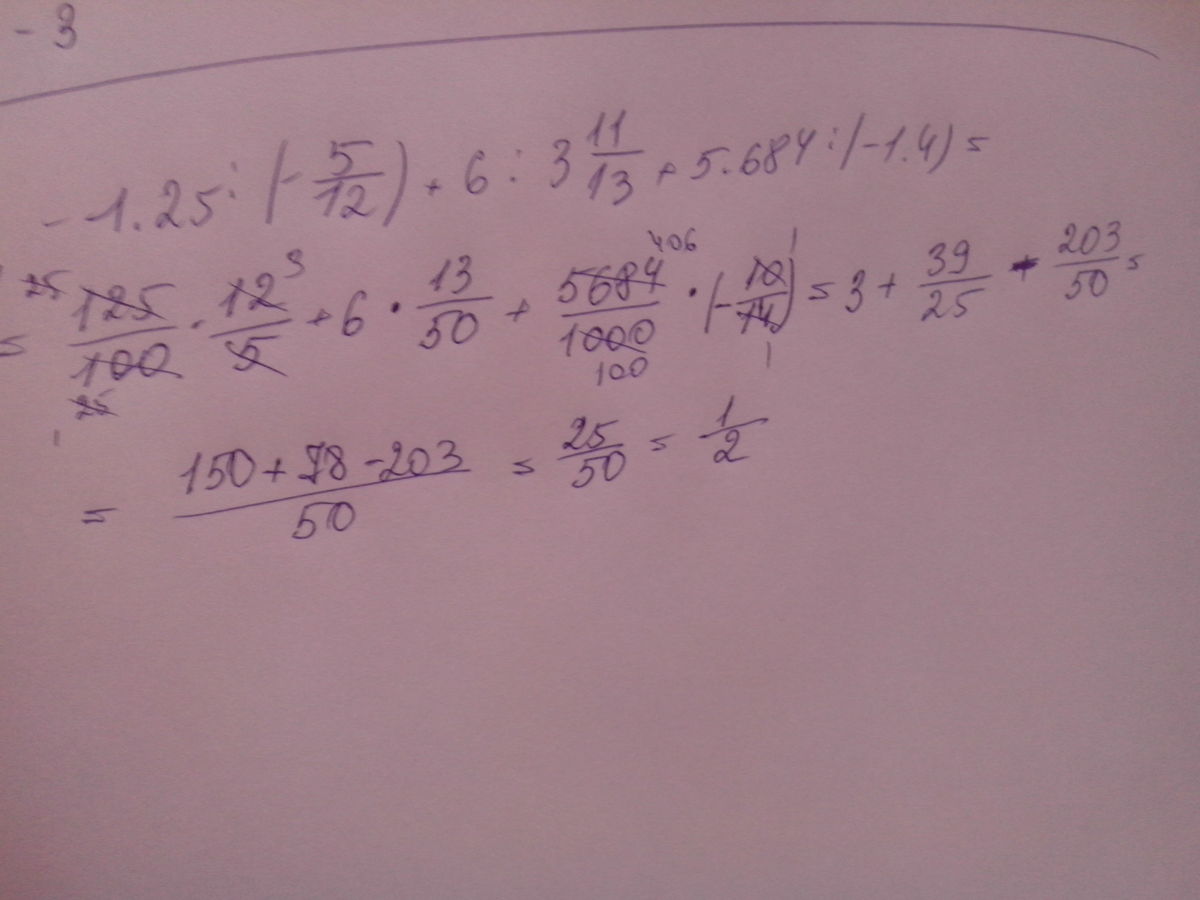 -3
-1.25 : (-5/12) + 6 : 3 11/13 + 5.684 : (-1.4) =
= 125/100 · 12/5 + 6 · 13/50 + 5684/1000 · (-10/14) = 3 + 39/25 - 203/50 =
= (150 + 78 - 203)/50 = 25/50 = 1/2